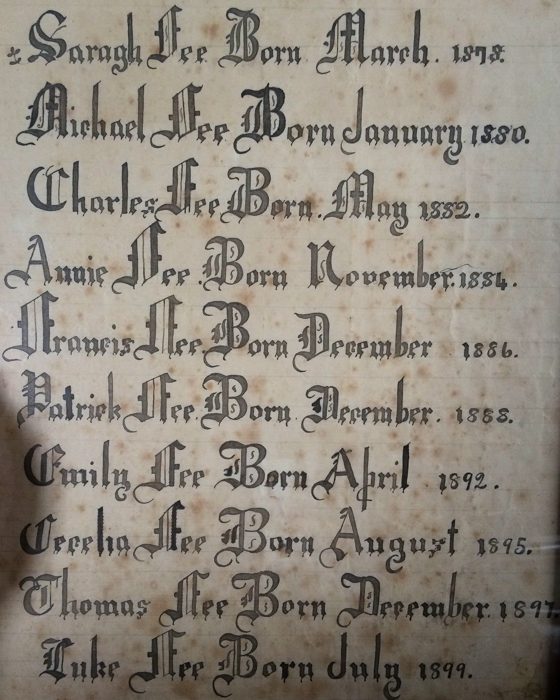 Saragh Fee Born March. 1878.
Michael Fee Born January 1880.
Charles Fee Born. May 1882.
Annie Fee. Born November. 1884.
Francis Fee Born December 1886.
Patrick Fee. Born December. 1888.
Emily Fee Born April 1892.
Cecelia Fee Born August 1895.
Thomas Fee Born December. 1897
Luke Fee Born July 1899.